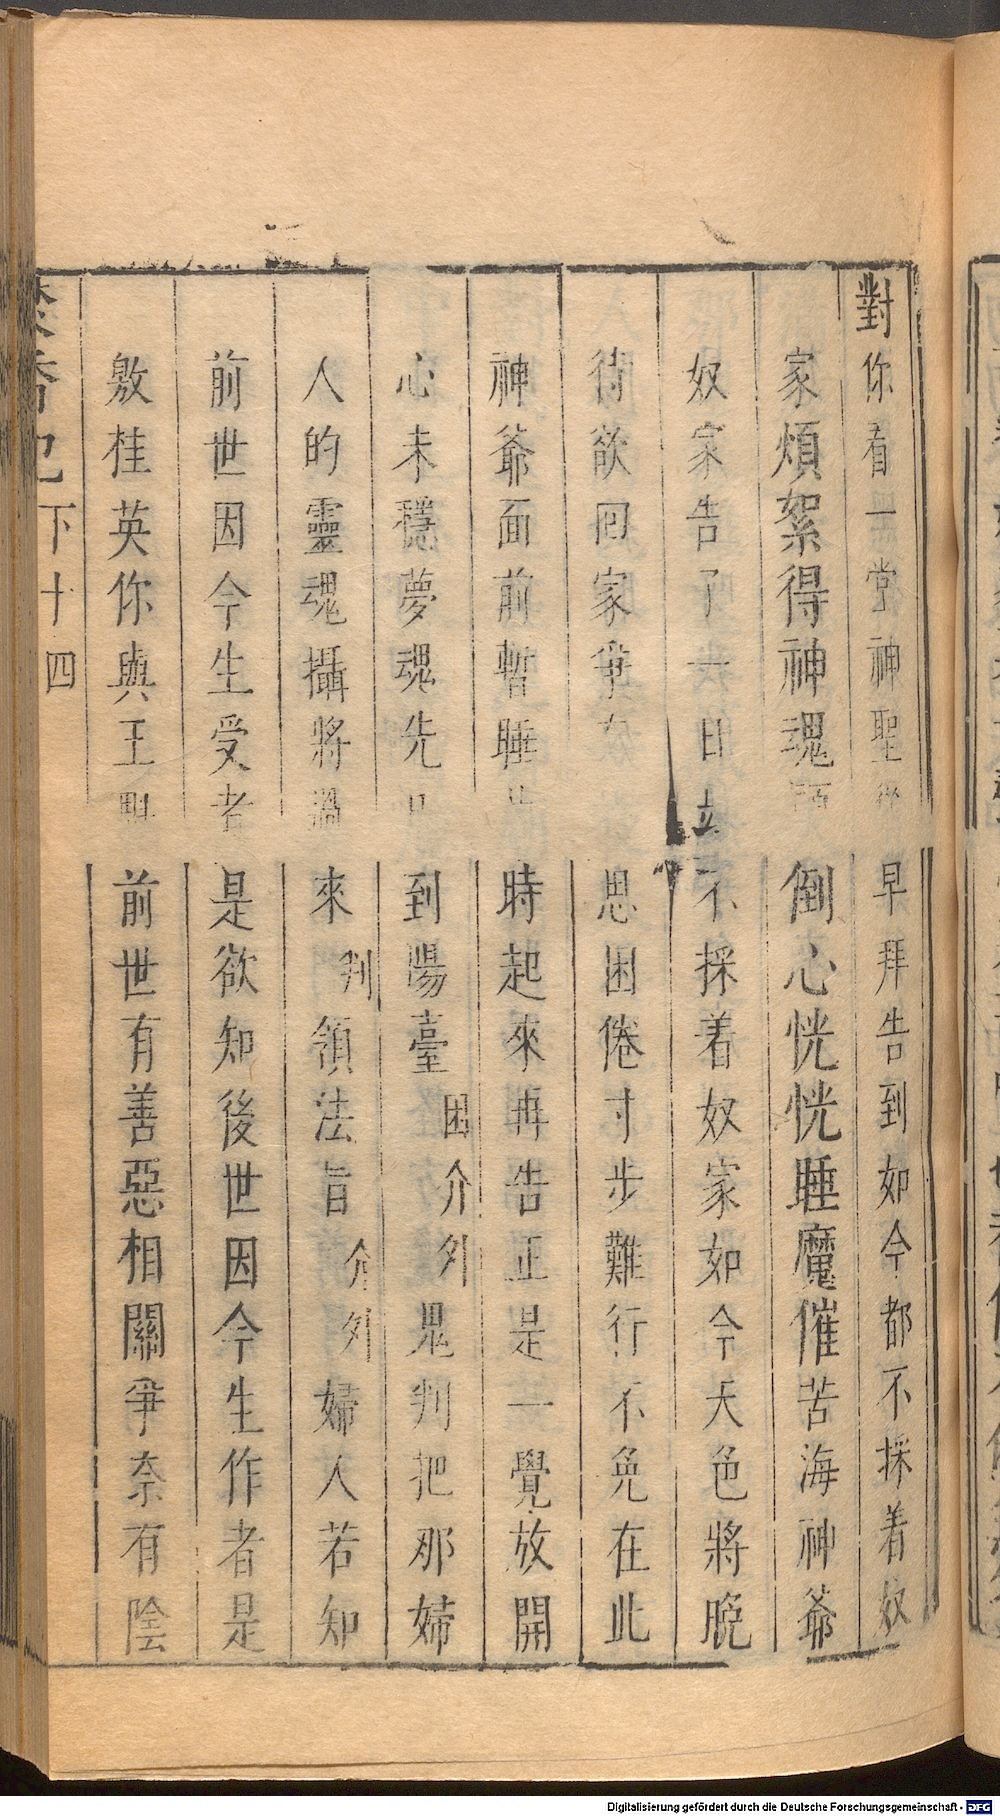 對你看一堂神聖從早拜告到如今都不採着奴
家煩絮得神魂顛倒心恍恍睡魔催苦海神爺
奴家告了一日並不採着奴家如今天色將晚
待欲回家爭奈思困倦寸步難行不免在此
神爺面前暫睡片時起來再告正是一覺放開
心未穩夢魂先已到陽臺困介外鬼判把那婦
人的靈魂攝將過來判領法旨介外婦人若知
前世因今生受者是欲知後世因今生作者是
敫桂英你與王魁前世有善惡相關爭奈有陰
焚香記下十四
Digitalisierung gefördert durch die Deutsche Forschungsgemeinschaft - DFG